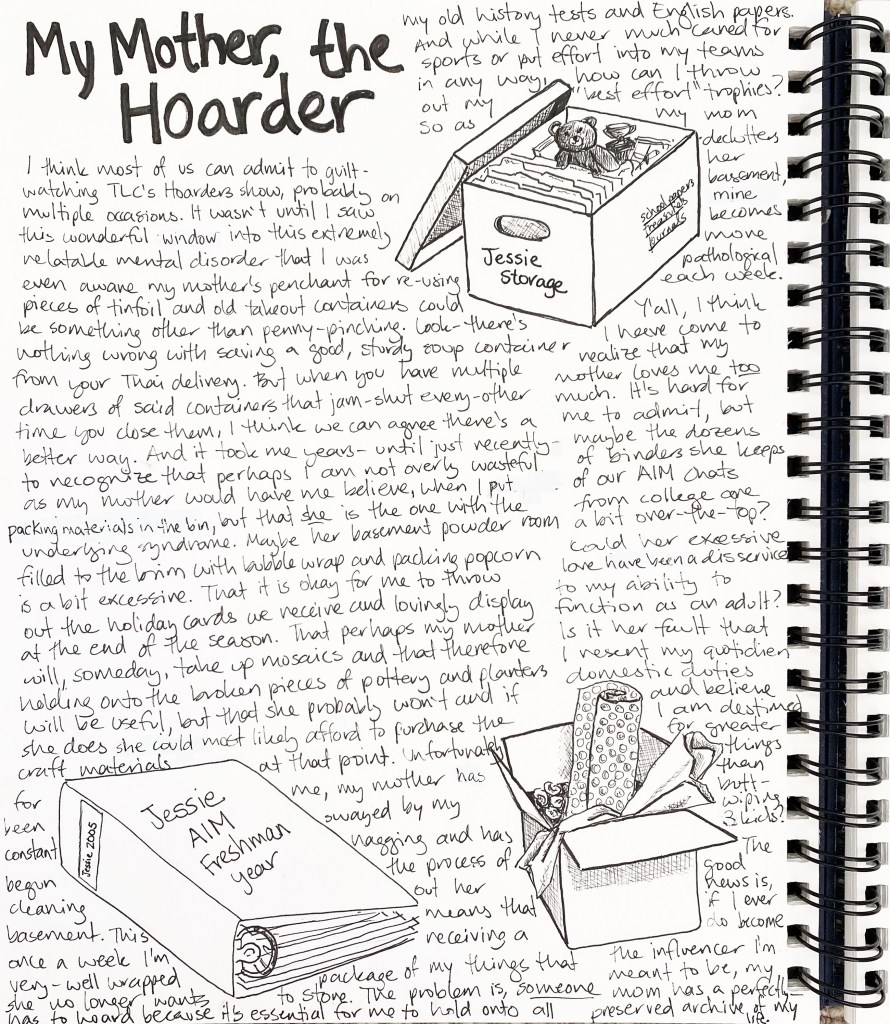 My Mother, the
Hoarder
I think most of us can admit to guilt-
watching TLC's Hoarders show, probably on
multiple occasions. It wasn't until I saw
this wonderful window into this extremely
relatable mental disorder that I was
even aware my mother's penchant for re-using
pieces of tinfoil and old takeout containers could
be something other than penny-pinching. Look-there's
nothing wrong with saving a good, sturdy soup container
from your Thai delivery. But when you have multiple
drawers of said containers that jam-shut every-other
time you close them, I think we can agree there's a
better way. And it took me years- until just recently-
to recognize that perhaps I am not overly wasteful
as my mother would have me believe, when I put
packing materials in the bin, but that she is the one with the
underlying syndrome. Maybe her basement powder room
filled to the brim with bubble wrap and packing popcorn
is a bit excessive. That it is okay for me to throw
out the holiday cards we receive and lovingly display
at the end of the season. That perhaps my mother
will, someday, take up mosaics and that therefore
holding onto the broken pieces of pottery and planters
will be useful, but that she probably won't and if
she does she could most likely afford to purchase the
craft materials at that point. Unfortunately
for me, my mother has
been swayed by my
constant nagging and has
begun the process of
cleaning out her
basement. This means that
once a week I'm receiving a
very-well wrapped package of my things that
she no longer wants to store. The problem is, someone
has to hoard because it's essential for me to hold onto all
my old history tests and English papers.
And while I never much cared for
sports or put effort into my teams
in any way, how can I throw
out my "best effort" trophies?
So as my mom
declutters
her
basement,
mine
becomes
more
pathological
each week.
Y'all, I think
I have come to
realize that my
mother loves me too
much. It's hard for
me to admit, but
maybe the dozens
of binders she keeps
of our AIM chats
from college are
a bit over-the-top?
Could her excessive
love have been a disservice
to my ability to
function as an adult?
Is it her fault that
I resent my quotidien
domestic duties
and believe
I am destined
for greater
things
than
butt-
wiping
3 kids?
The
good
news is,
if I ever
do become
the influencer I'm
meant to be, my
mom has a perfectly-
preserved archive of my
life.
Jessie
Storage
school papers
Treasures
Journals
Jessie
AIM
Freshman
year
Jessie 2005